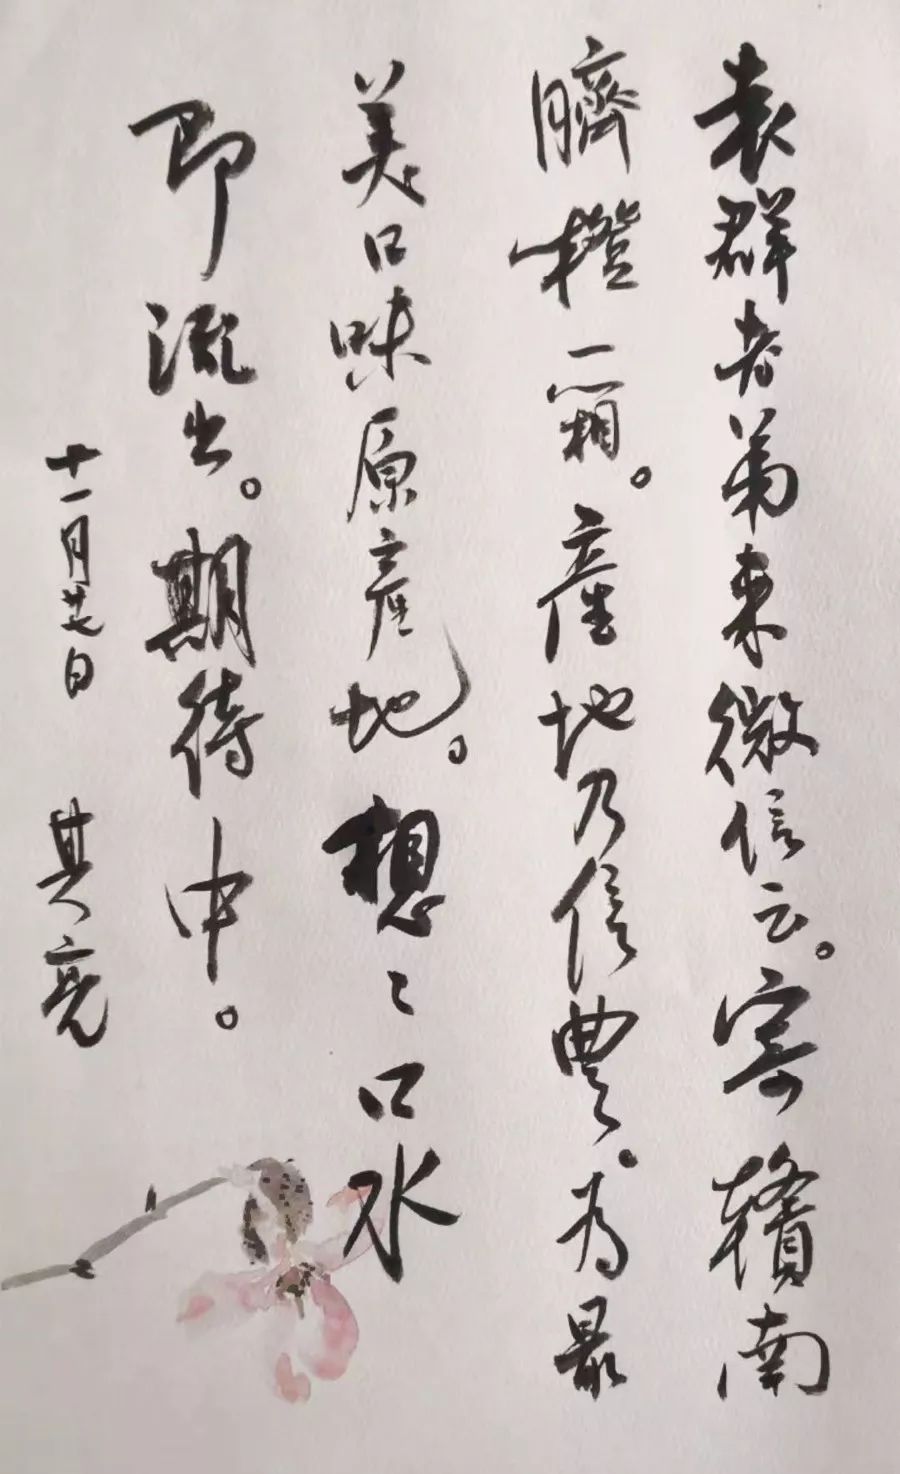 袁群老弟来微信云。寄赣南
臍橙一箱。產地乃信豐。为最
美口味原產地。想〻口水
即流出。期待中。
十一月廿七日 其亮